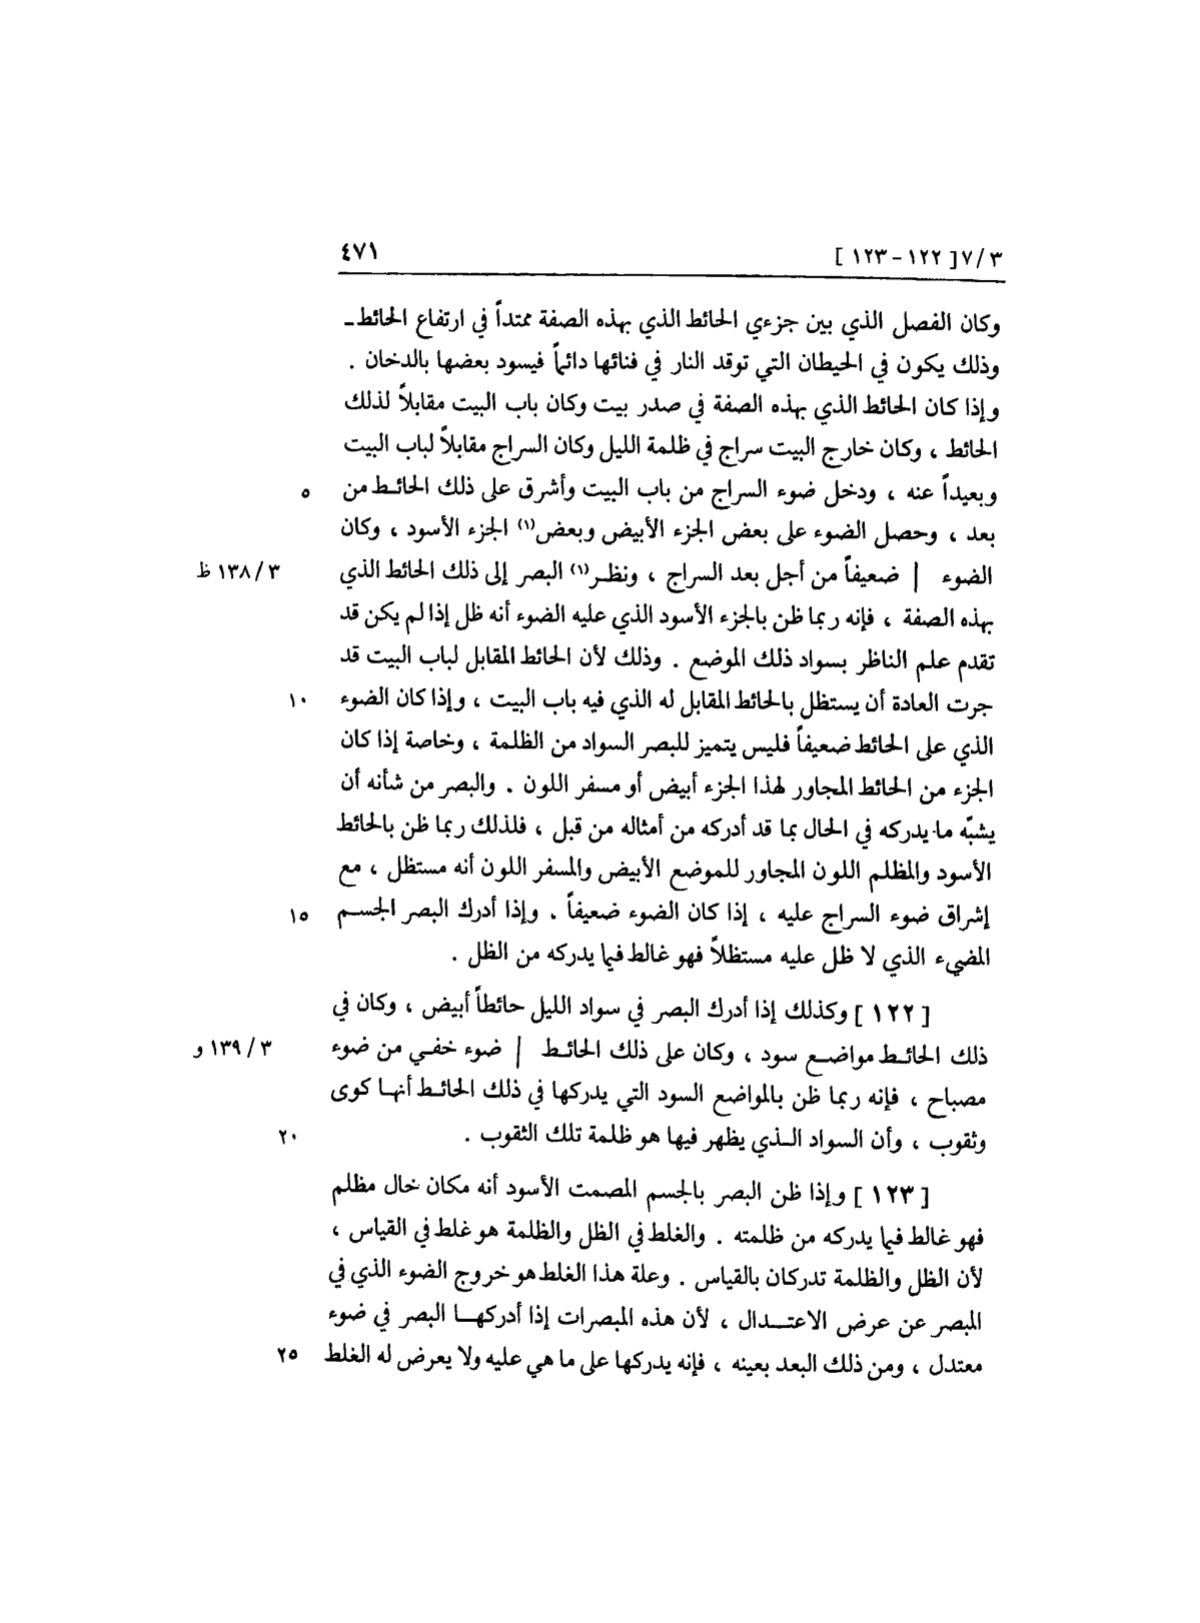 ٣/٧ [ ١٢٢ - ١٢٣ ] ٤٧١
وكان الفصل الذي بين جزءي الحائط الذي بهذه الصفة ممتداً في ارتفاع الحائط ـ
وذلك يكون في الحيطان التي توقد النار في فنائها دائماً فيسود بعضها بالدخان .
وإذا كان الحائط الذي بهذه الصفة في صدر بيت وكان باب البيت مقابلاً لذلك
الحائط ، وكان خارج البيت سراج في ظلمة الليل وكان السراج مقابلاً لباب البيت
وبعيداً عنه ، ودخل ضوء السراج من باب البيت وأشرق على ذلك الحائط من ٥
بعد ، وحصل الضوء على بعض الجزء الأبيض وبعض(١) الجزء الأسود ، وكان
الضوء | ضعيفاً من أجل بعد السراج ، ونظر(١) البصر إلى ذلك الحائط الذي ٣/ ١٣٨ ظ
بهذه الصفة ، فإنه ربما ظن بالجزء الأسود الذي عليه الضوء أنه ظل إذا لم يكن قد
تقدم علم الناظر بسواد ذلك الموضع . وذلك لأن الحائط المقابل لباب البيت قد
جرت العادة أن يستظل بالحائط المقابل له الذي فيه باب البيت ، وإذا كان الضوء ١٠
الذي على الحائط ضعيفاً فليس يتميز للبصر السواد من الظلمة ، وخاصة إذا كان
الجزء من الحائط المجاور لهذا الجزء أبيض أو مسفر اللون . والبصر من شأنه أن
يشبّه ما يدركه في الحال بما قد أدركه من أمثاله من قبل ، فلذلك ربما ظن بالحائط
الأسود والمظلم اللون المجاور للموضع الأبيض والمسفر اللون أنه مستظل ، مع
إشراق ضوء السراج عليه ، إذا كان الضوء ضعيفاً . وإذا أدرك البصر الجسم ١٥
المضيء الذي لا ظل عليه مستظلاً فهو غالط فيما يدركه من الظل .
[ ١٢٢ ] وكذلك إذا أدرك البصر في سواد الليل حائطاً أبيض ، وكان في
ذلك الحائط مواضع سود ، وكان على ذلك الحائط | ضوء خفي من ضوء ٣/ ١٣٩ و
مصباح ، فإنه ربما ظن بالمواضع السود التي يدركها في ذلك الحائط أنها كوى
وثقوب ، وأن السواد الذي يظهر فيها هو ظلمة تلك الثقوب . ٢٠
[ ١٢٣ ] وإذا ظن البصر بالجسم المصمت الأسود أنه مكان خال مظلم
فهو غالط فيما يدركه من ظلمته . والغلط في الظل والظلمة هو غلط في القياس ،
لأن الظل والظلمة تدركان بالقياس . وعلة هذا الغلط هو خروج الضوء الذي في
المبصر عن عرض الاعتدال ، لأن هذه المبصرات إذا أدركها البصر في ضوء
معتدل ، ومن ذلك البعد بعينه ، فإنه يدركها على ما هي عليه ولا يعرض له الغلط ٢٥